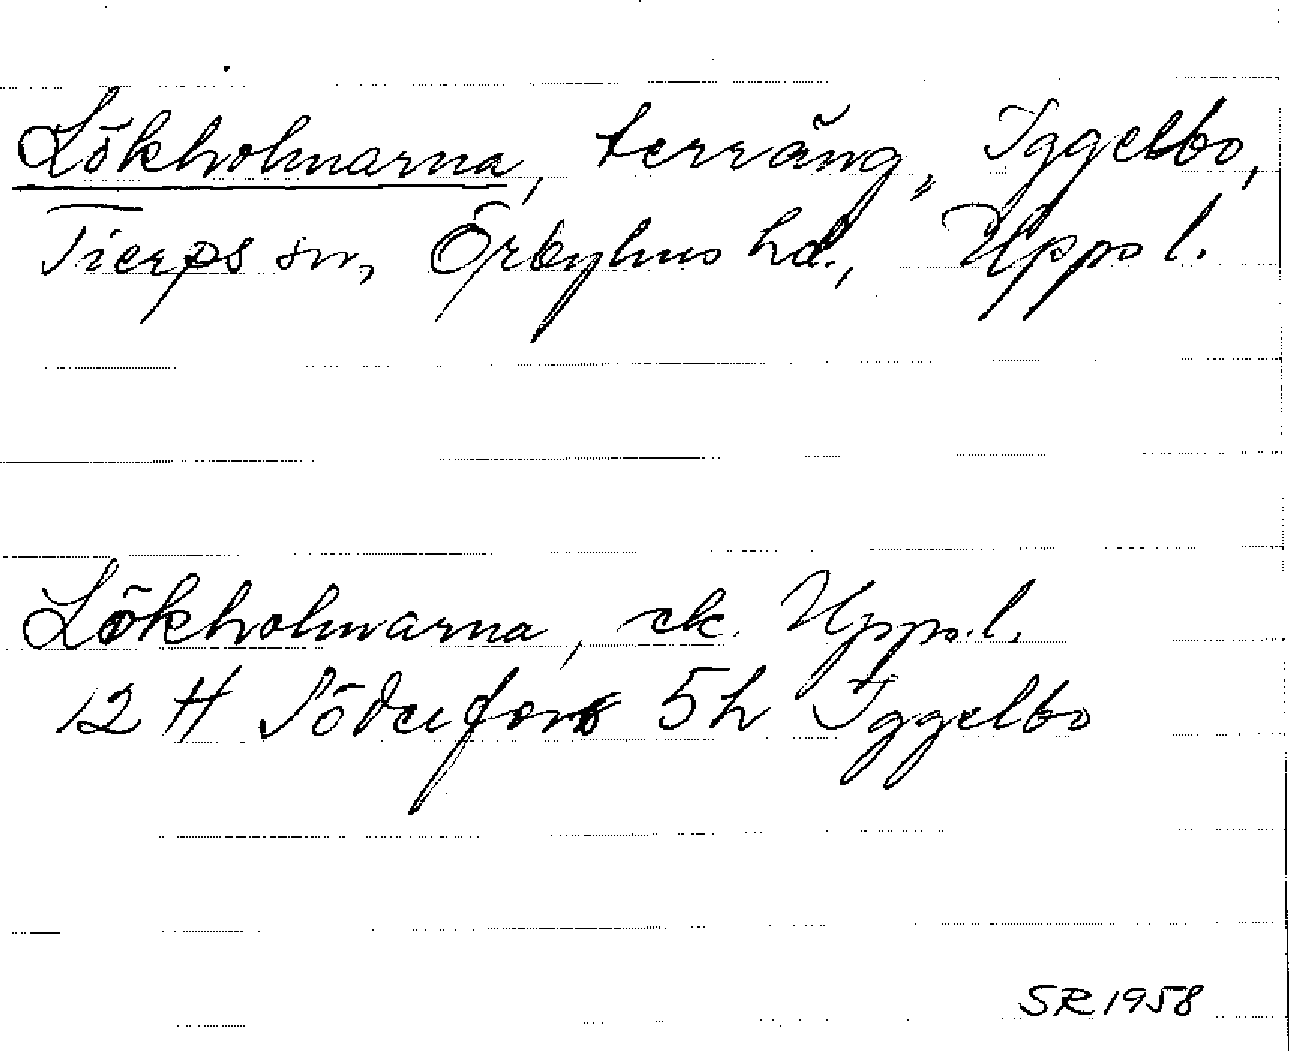 Lökholmarna, terräng, Iggelbo,
Tierps sn, Örbyhus hd., Uppsl.
Lökholmarna, ek. Upps.l.
12 H Söderfors 5h Iggelbo
SR 1958